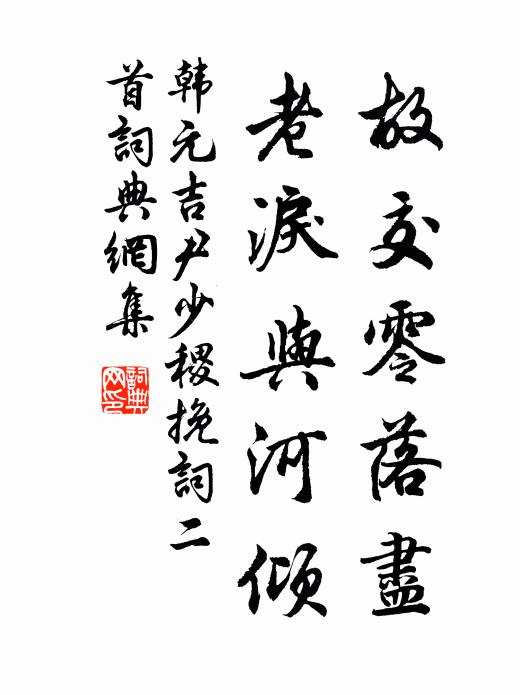 故交零落盡
老淚與河傾
韩元吉尹少稷挽詞二
首詞典網集
詞典网印